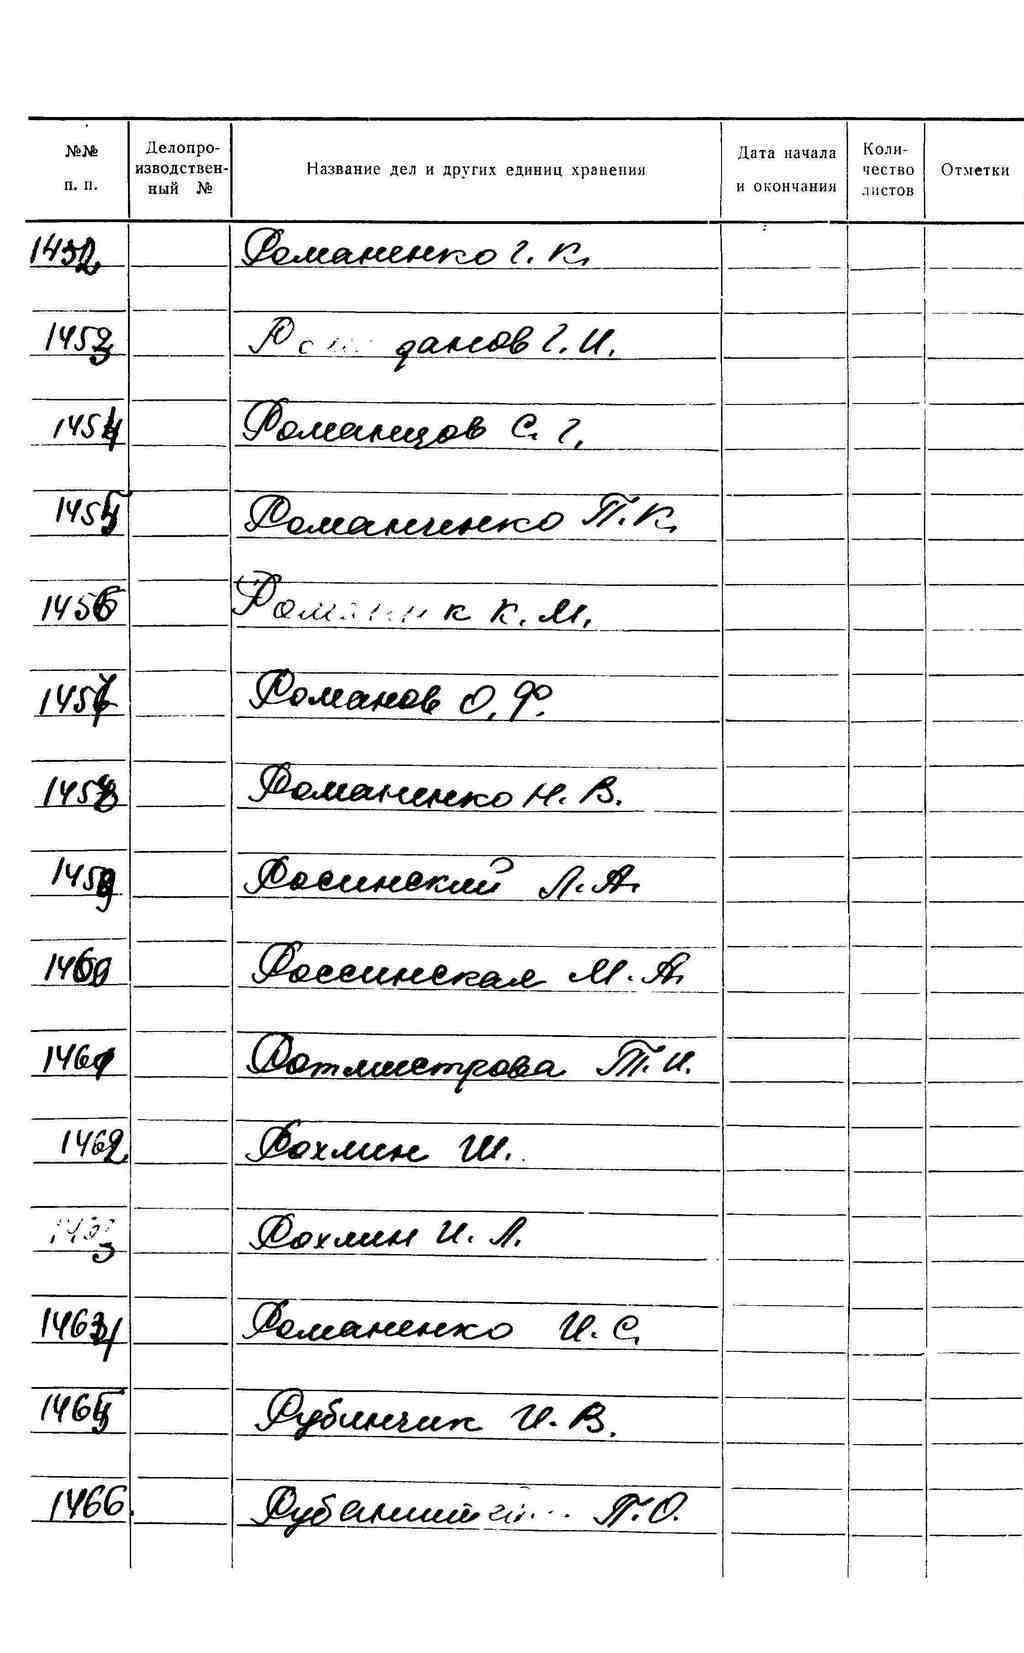 №№ п. п. Делопроизводственный № Название дел и других единиц хранения Дата начала и окончания Количество листов Отметки
1452 Романенко Г. К.
1453 Г. И.
1454 Романцов С. Г.
1455 Романченко П. К.
1456 К. М.
1457 Романов О. Ф.
1458 Романенко Н. В.
1459 Росинский Л. А.
1460 Россинская М. А.
1461 Ротмистрова Т. И.
1462 Рохлин Ш.
1463 Рохлин И. Л.
1464 Романенко И. С.
1465 Рубинчик И. В.
1466 П. О.